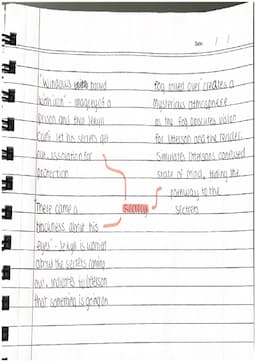 Date: / /
"Windows barred
with iron" - imagery of a
prison and that Jekyll
can't let his secrets get
out, association for
protection
"There came a
blackness about his
eyes" - Jekyll is worried
about the secrets coming
out, indicates to Utterson
that something is going on
secrecy
"Fog rolled over" creates a
mysterious atmosphere
as the fog obscures vision
for Utterson and the reader.
Simulates Uttersons confused
state of mind, hiding the
pathway to the
secrets